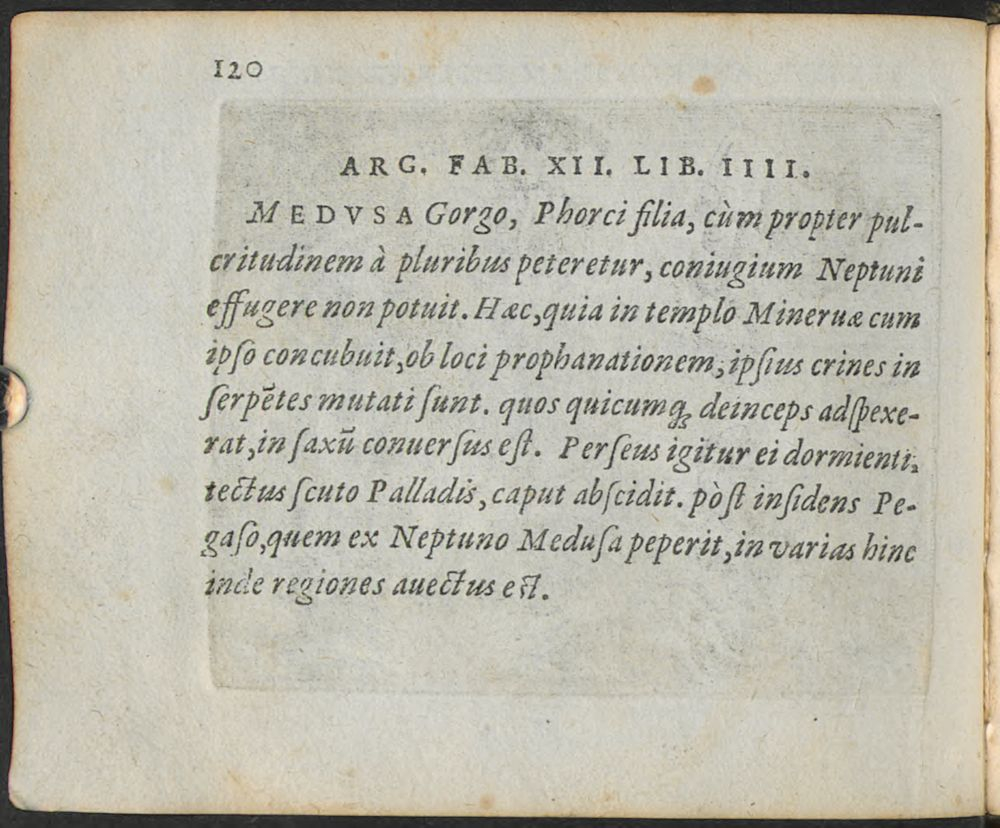 120
ARG. FAB. XII. LIB. IIII.
MEDVSA Gorgo, Phorci filia, cùm propter pul-
critudinem à pluribus peteretur, coniugium Neptuni
effugere non potuit. Hæc, quia in templo Mineruæ cum
ipſo concubuit, ob loci prophanationem, ipſius crines in
ſerpẽtes mutati ſunt. quos quicumq̃ deinceps adſpexe-
rat, in ſaxũ conuerſus eſt. Perſeus igitur ei dormienti,
tectus ſcuto Palladis, caput abſcidit. pòſt inſidens Pe-
gaſo, quem ex Neptuno Meduſa peperit, in varias hinc
inde regiones auectus eſt.